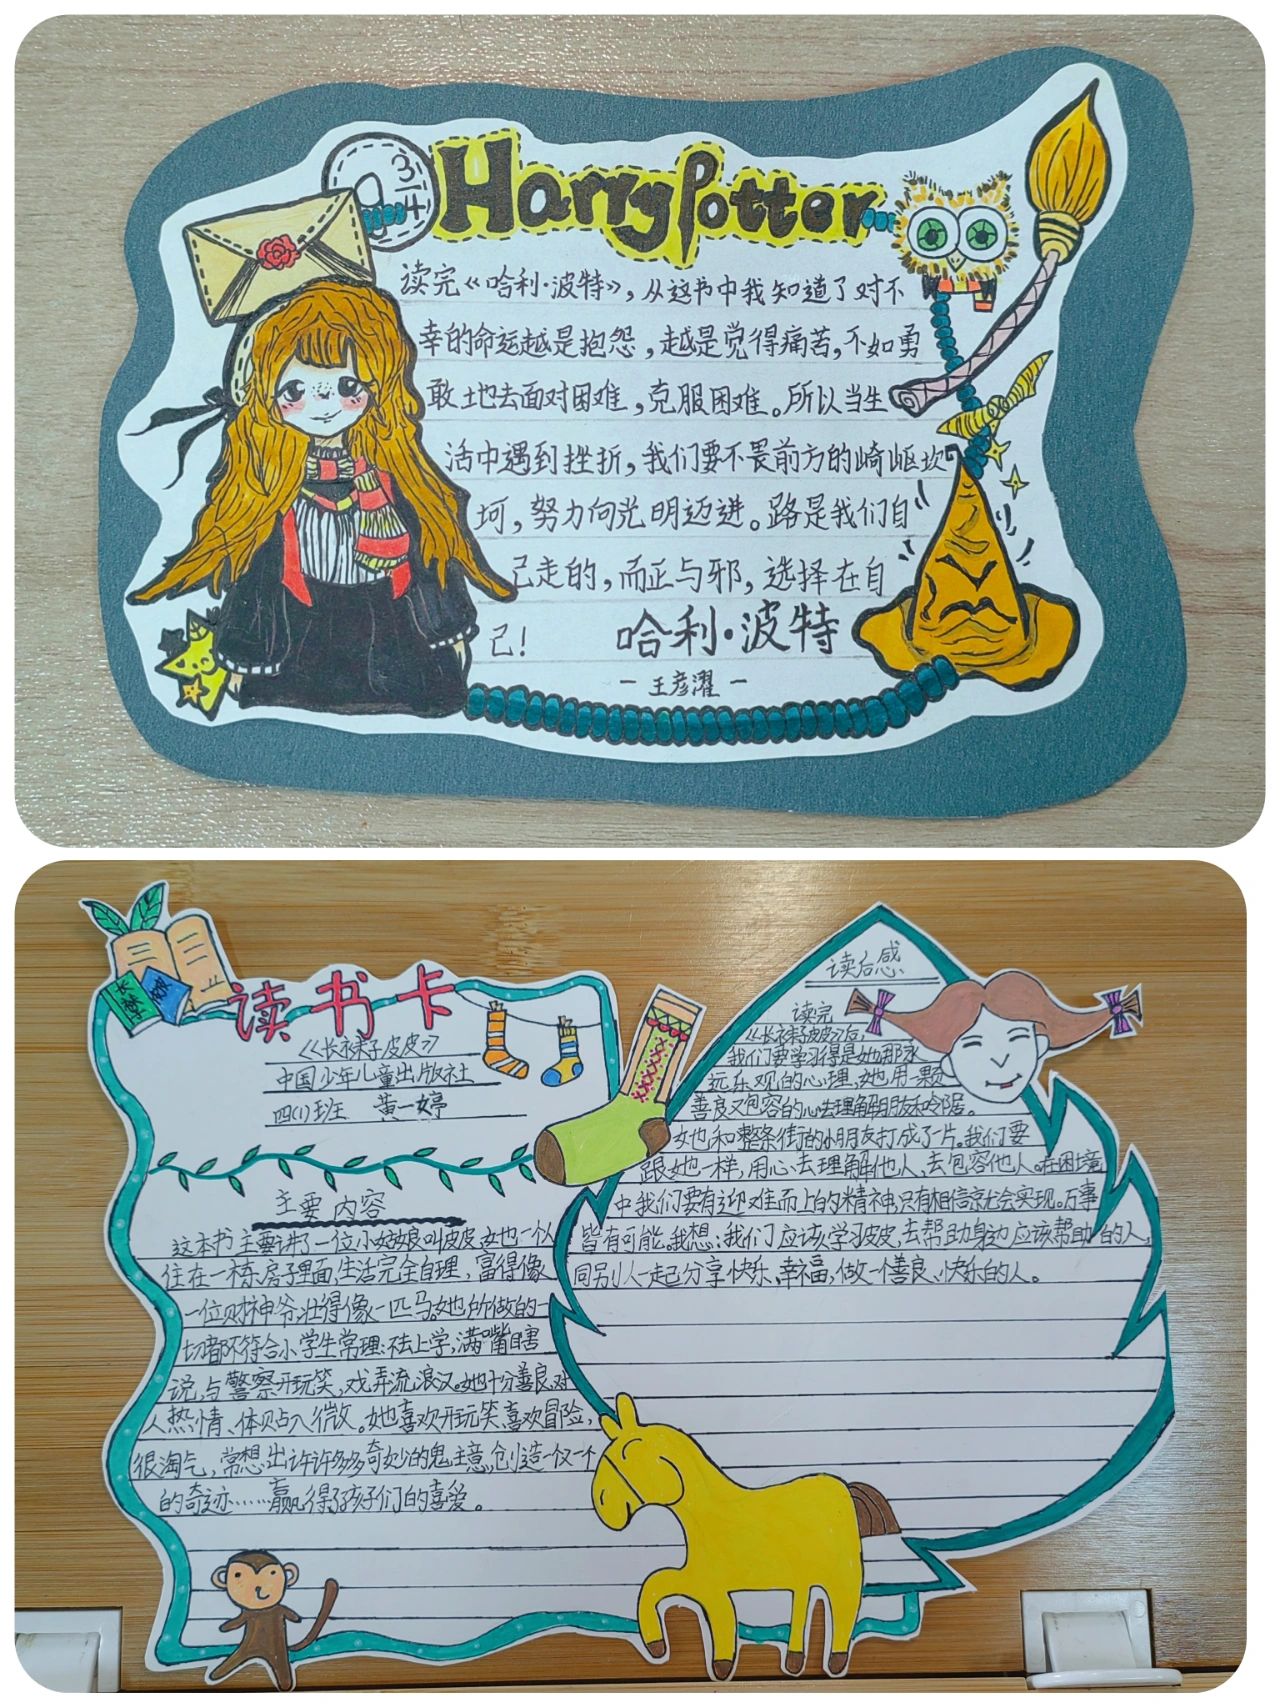 3/4
Harry Potter
读完《哈利·波特》，从这书中我知道了对不
幸的命运越是抱怨，越是觉得痛苦，不如勇
敢地去面对困难，克服困难。所以当生
活中遇到挫折，我们要不畏前方的崎岖坎
坷，努力向光明迈进。路是我们自
己走的，而正与邪，选择在自
己！
哈利·波特
－王彦濯－
读书卡
《长袜子皮皮》
中国少年儿童出版社
四(1)班 黄一婷
主要内容
这本书主要讲了一位小姑娘叫皮皮,她一个人
住在一栋房子里面,生活完全自理，富得像
一位财神爷,壮得像一匹马。她所做的一
切都不符合小学生常理：不去上学,满嘴瞎
说,与警察开玩笑,戏弄流浪汉。她十分善良,对
人热情、体贴入微。她喜欢开玩笑,喜欢冒险,
很淘气,常想出许许多多奇妙的鬼主意,创造一个又一个
的奇迹……赢得了孩子们的喜爱。
读后感
读完
《长袜子皮皮》后,
我们要学习得是她那永
远乐观的心理,她用一颗
善良又包容的心去理解朋友和邻居。
她和整条街的小朋友打成了片。我们要
跟她一样,用心去理解他人、去包容他人。在困境
中我们要有迎难而上的精神,只有相信就会实现。万事
皆有可能。我想：我们应该学习皮皮,去帮助身边应该帮助的人,
同别人一起分享快乐、幸福,做一个善良、快乐的人。